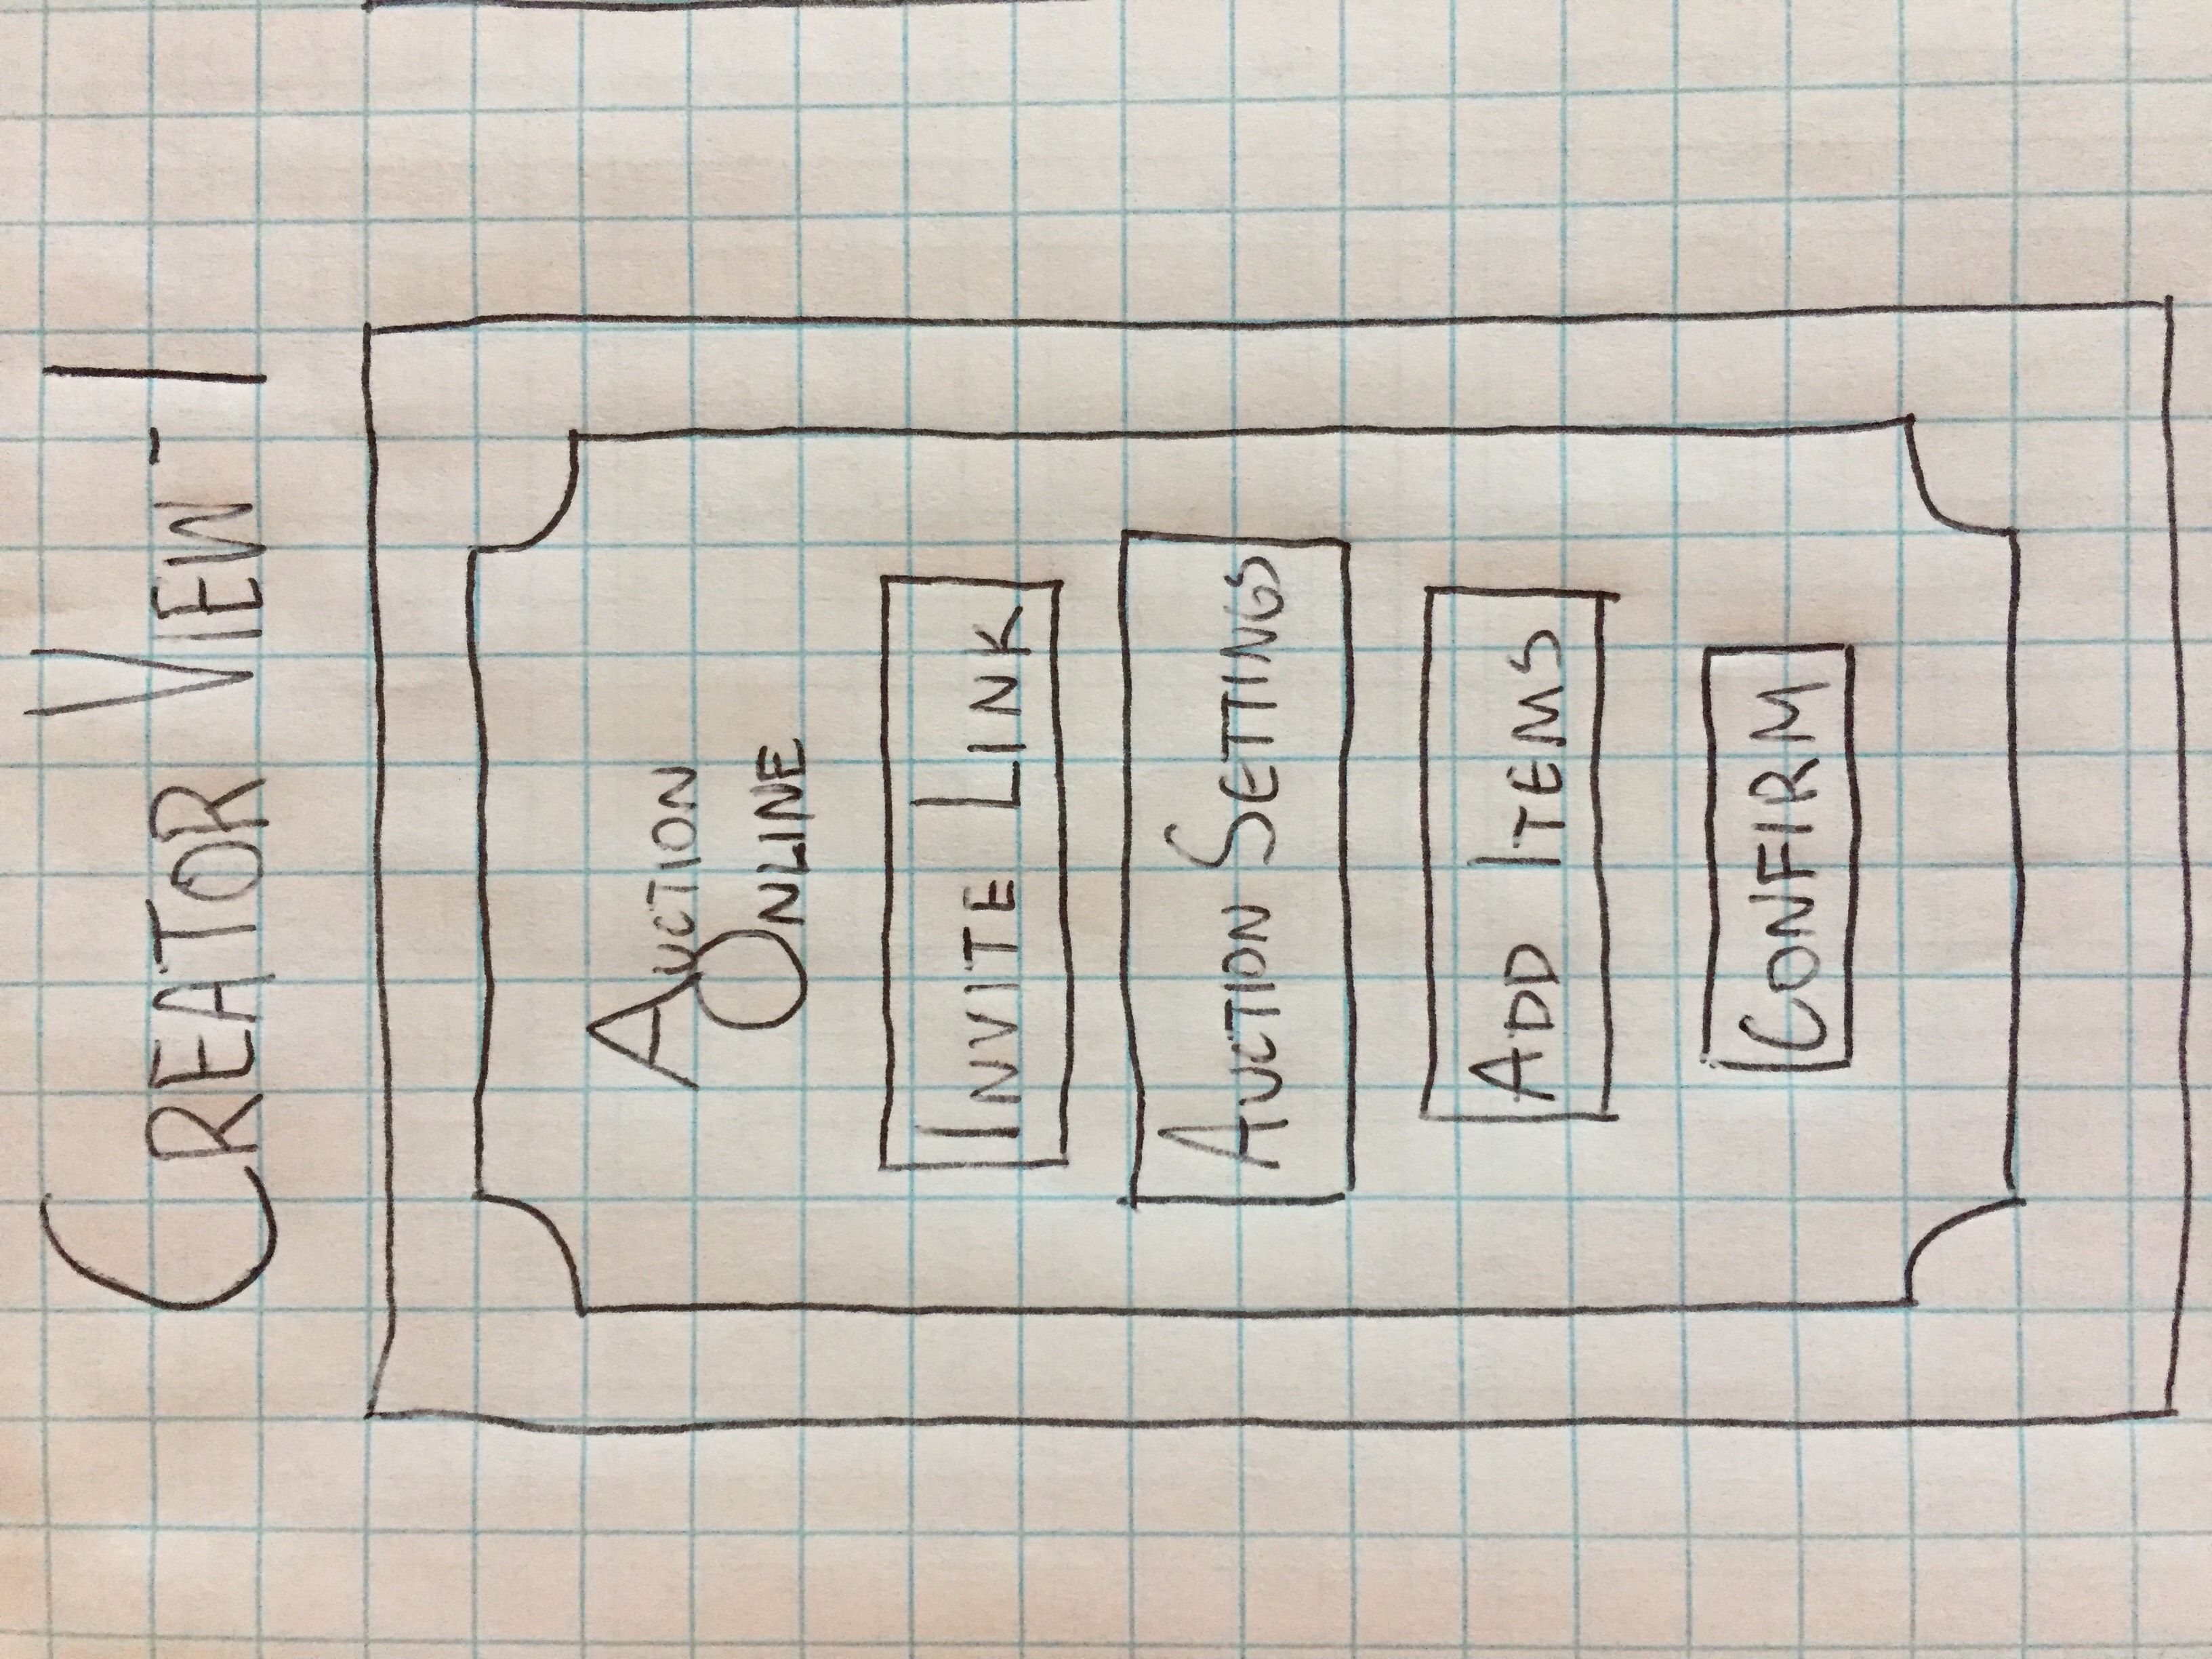 CREATOR VIEW-1
AUCTION
ONLINE
INVITE LINK
AUCTION SETTINGS
ADD ITEMS
CONFIRM